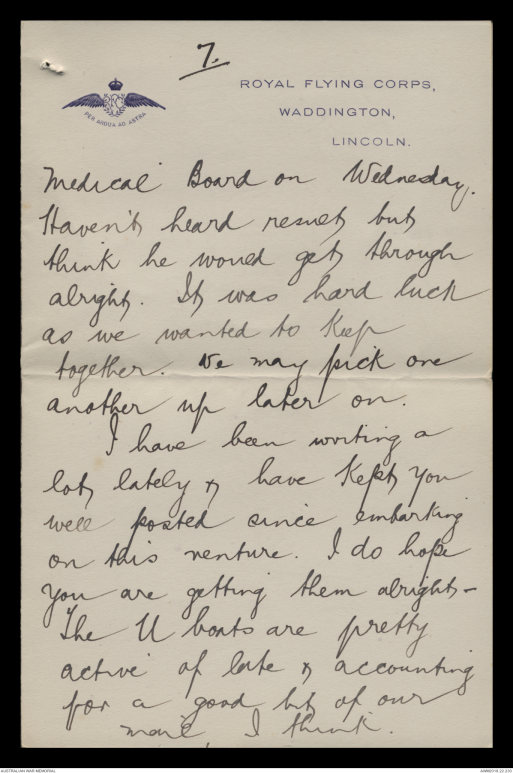 7.
ROYAL FLYING CORPS,
WADDINGTON,
LINCOLN.
PER ARDUA AD ASTRA
Medical Board on Wednesday.
Haven't heard result but
think he would get through
alright. It was hard luck
as we wanted to keep
together. We may pick one
another up later on.
I have been writing a
lot lately & have kept you
well posted since embarking
on this venture. I do hope
you are getting them alright -
The U boats are pretty
active of late & accounting
for a good bit of our
mail, I think.
AUSTRALIAN WAR MEMORIAL